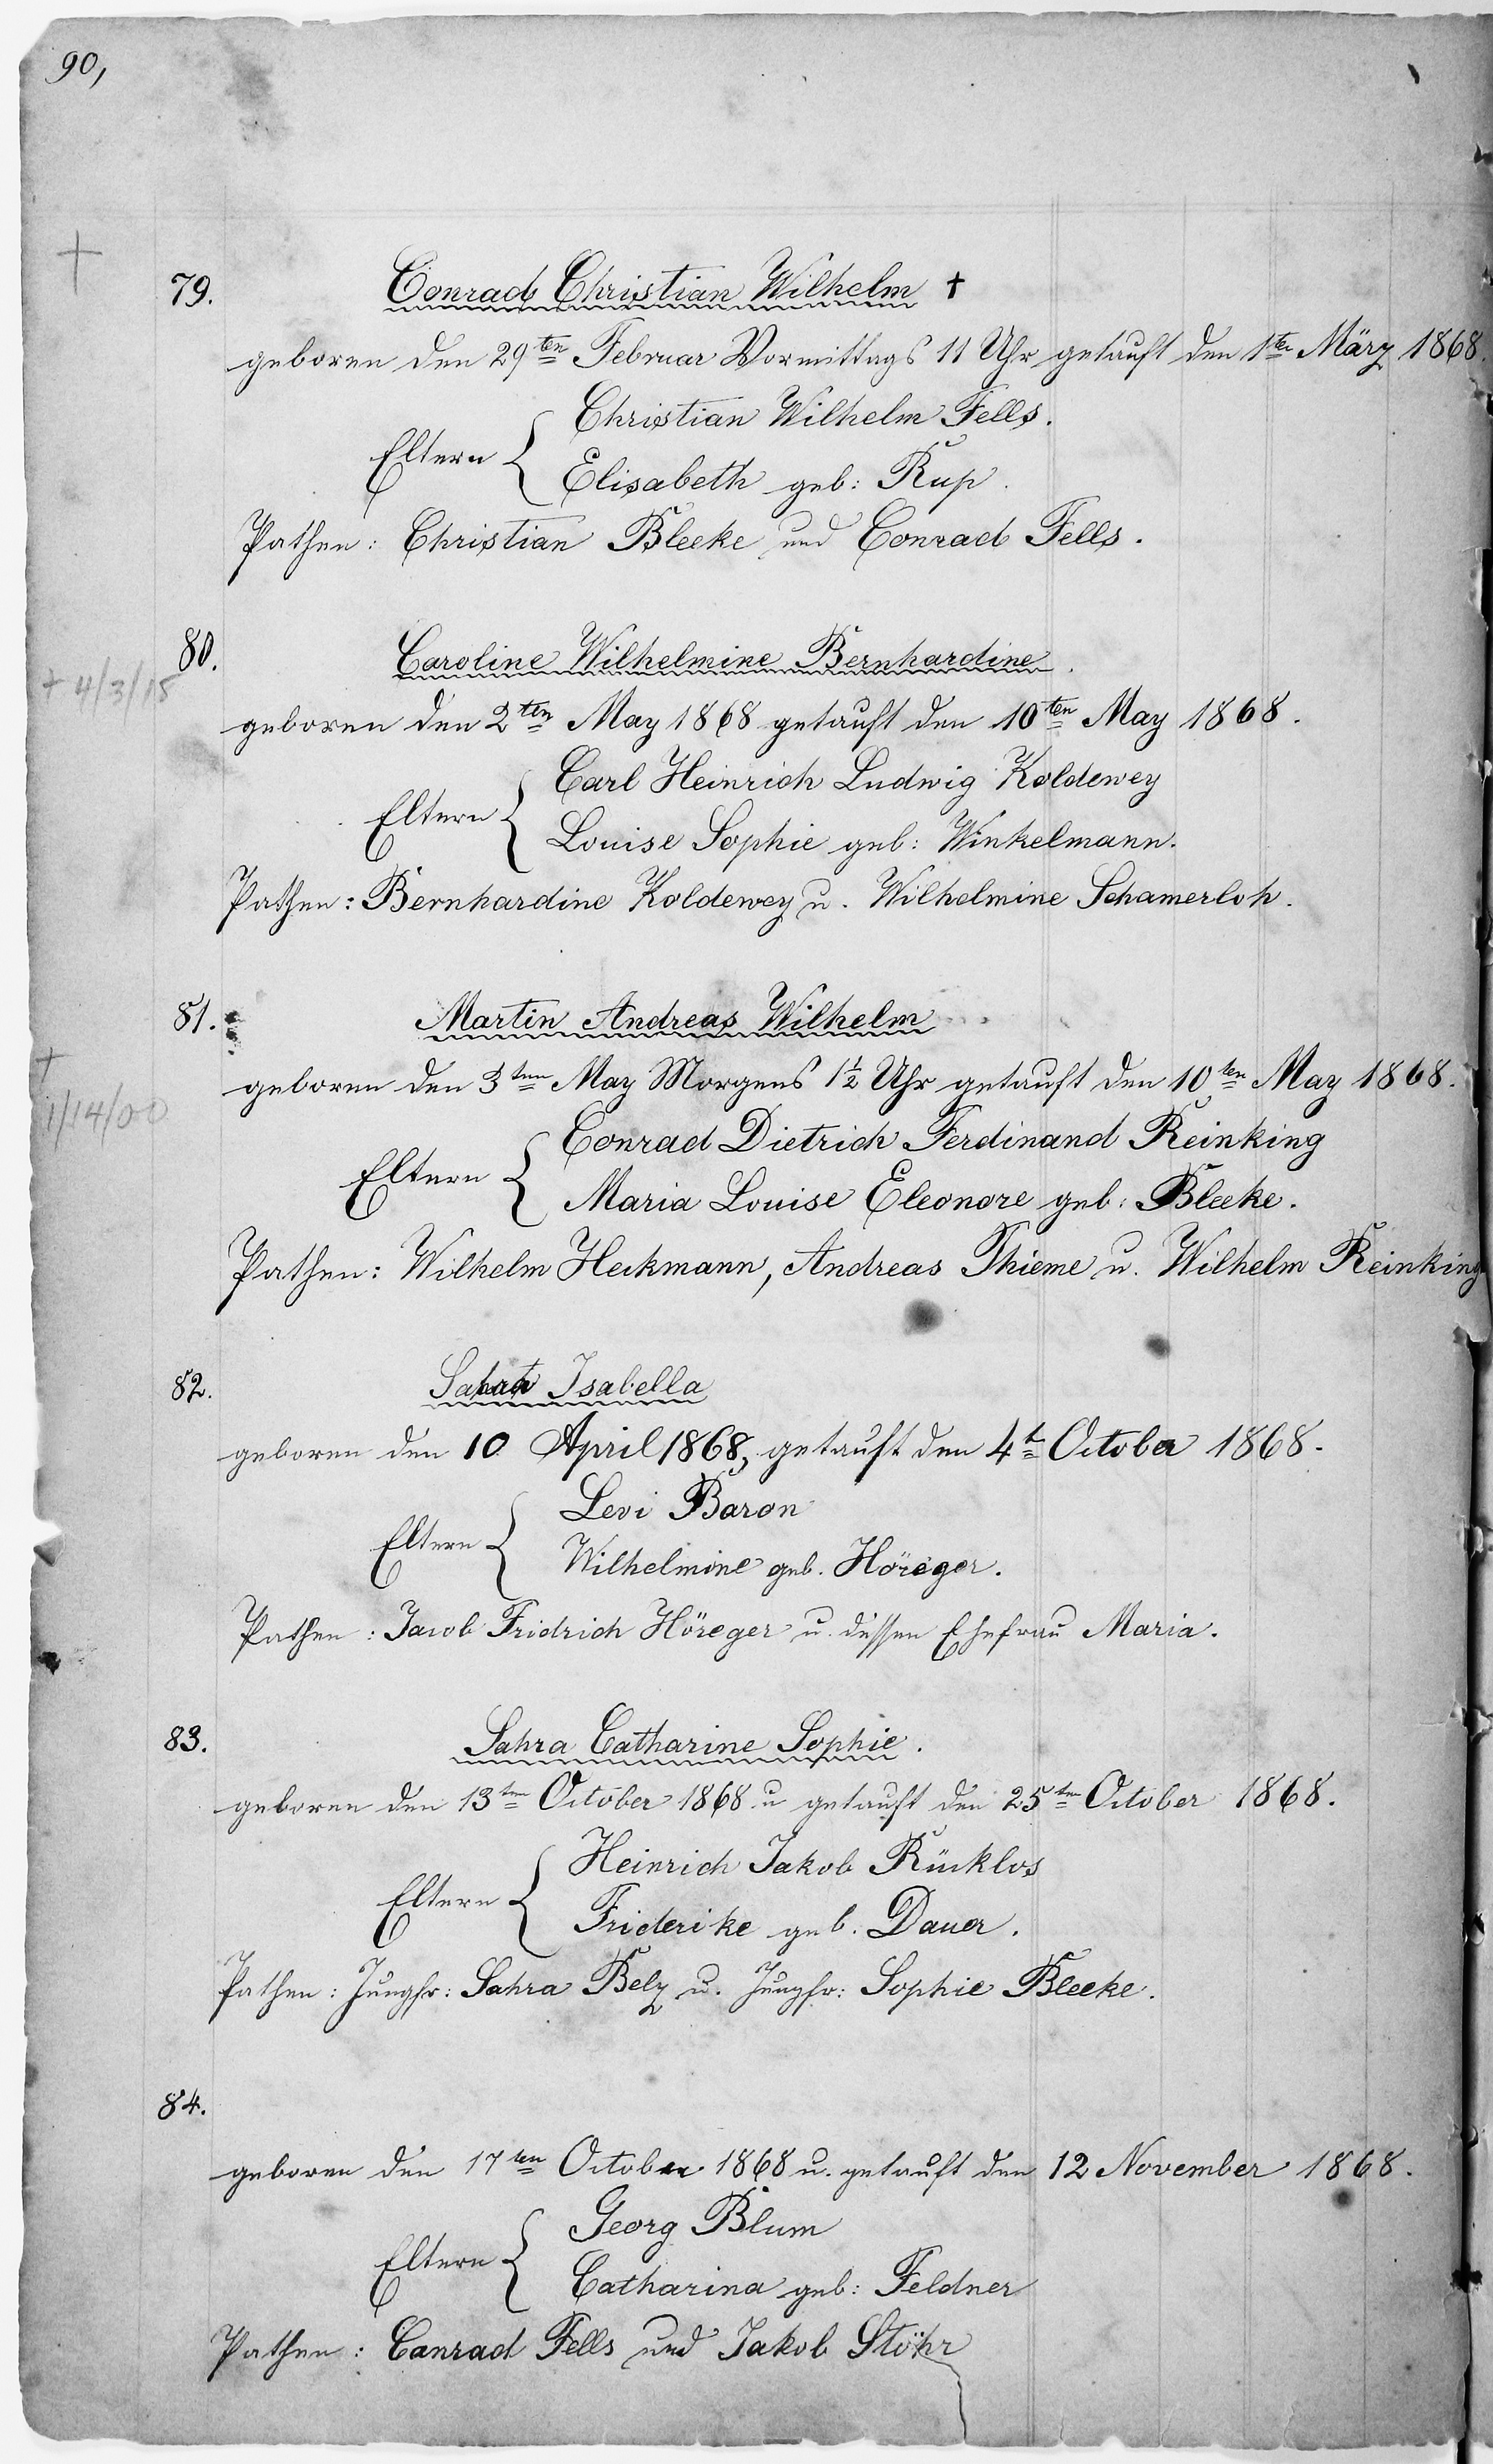 90,
+
79.
Conrad Christian Wilhelm †
geboren den 29ten Februar Vormittags 11 Uhr getauft den 1ten März 1868.
Eltern { Christian Wilhelm Fells.
Elisabeth geb: Rup.
Pathen: Christian Bleeke und Conrad Fells.
80.
+ 4/3/18
Caroline Wilhelmine Bernhardine.
geboren den 2ten May 1868 getauft den 10ten May 1868.
Eltern { Carl Heinrich Ludwig Koldewey
Louise Sophie geb: Winkelmann.
Pathen: Bernhardine Koldewey u. Wilhelmine Schamerloh.
81.
Martin Andreas Wilhelm
+
1/14/00
geboren den 3ten May Morgens 1½ Uhr getauft den 10ten May 1868.
Eltern { Conrad Dietrich Ferdinand Reinking
Maria Louise Eleonore geb: Bleeke.
Pathen: Wilhelm Heckmann, Andreas Thieme u. Wilhelm Reinking
82.
Isabella
geboren den 10 April 1868, getauft den 4t October 1868.
Eltern { Levi Baron
Wilhelmine geb. Höreger.
Pathen: Jacob Fridrich Höreger u. dessen Ehefrau Maria.
83.
Sahra Catharine Sophie.
geboren den 13ten October 1868 u getauft den 25ten October 1868.
Eltern { Heinrich Jakob Rücklos
Friderike geb. Dauer.
Pathen: Jungfr: Sahra Belz u. Jungfr: Sophie Bleeke.
84.
geboren den 17ten October 1868 u. getauft den 12 November 1868.
Eltern { Georg Blum
Catharina geb: Feldner
Pathen: Conrad Fells und Jakob Stöhr